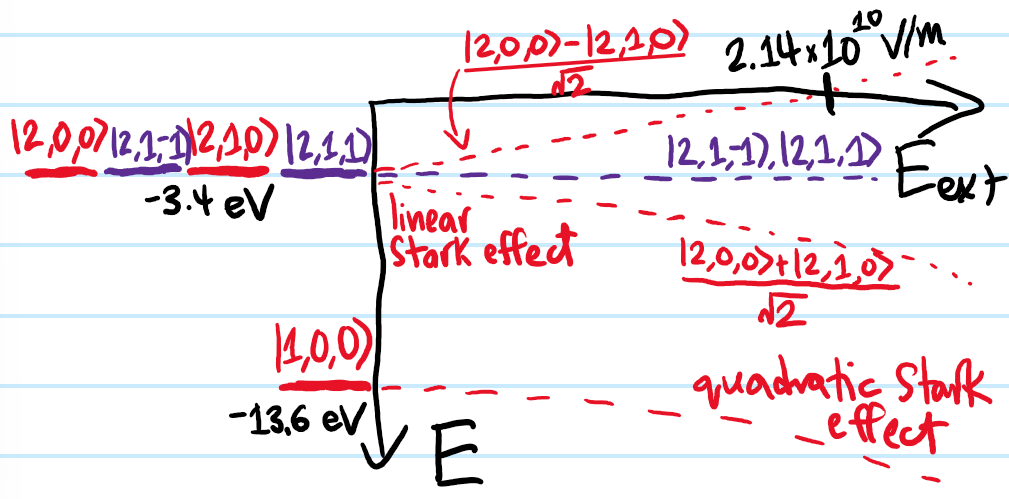 |2,0,0⟩-|2,1,0⟩
√2
2.14×10¹⁰ V/m
|2,0,0⟩ |2,1,-1⟩ |2,1,0⟩ |2,1,1⟩
-3.4 eV
|2,1,-1⟩,|2,1,1⟩
E_ext
linear
Stark effect
|2,0,0⟩+|2,1,0⟩
√2
|1,0,0⟩
-13.6 eV
quadratic Stark
effect
E